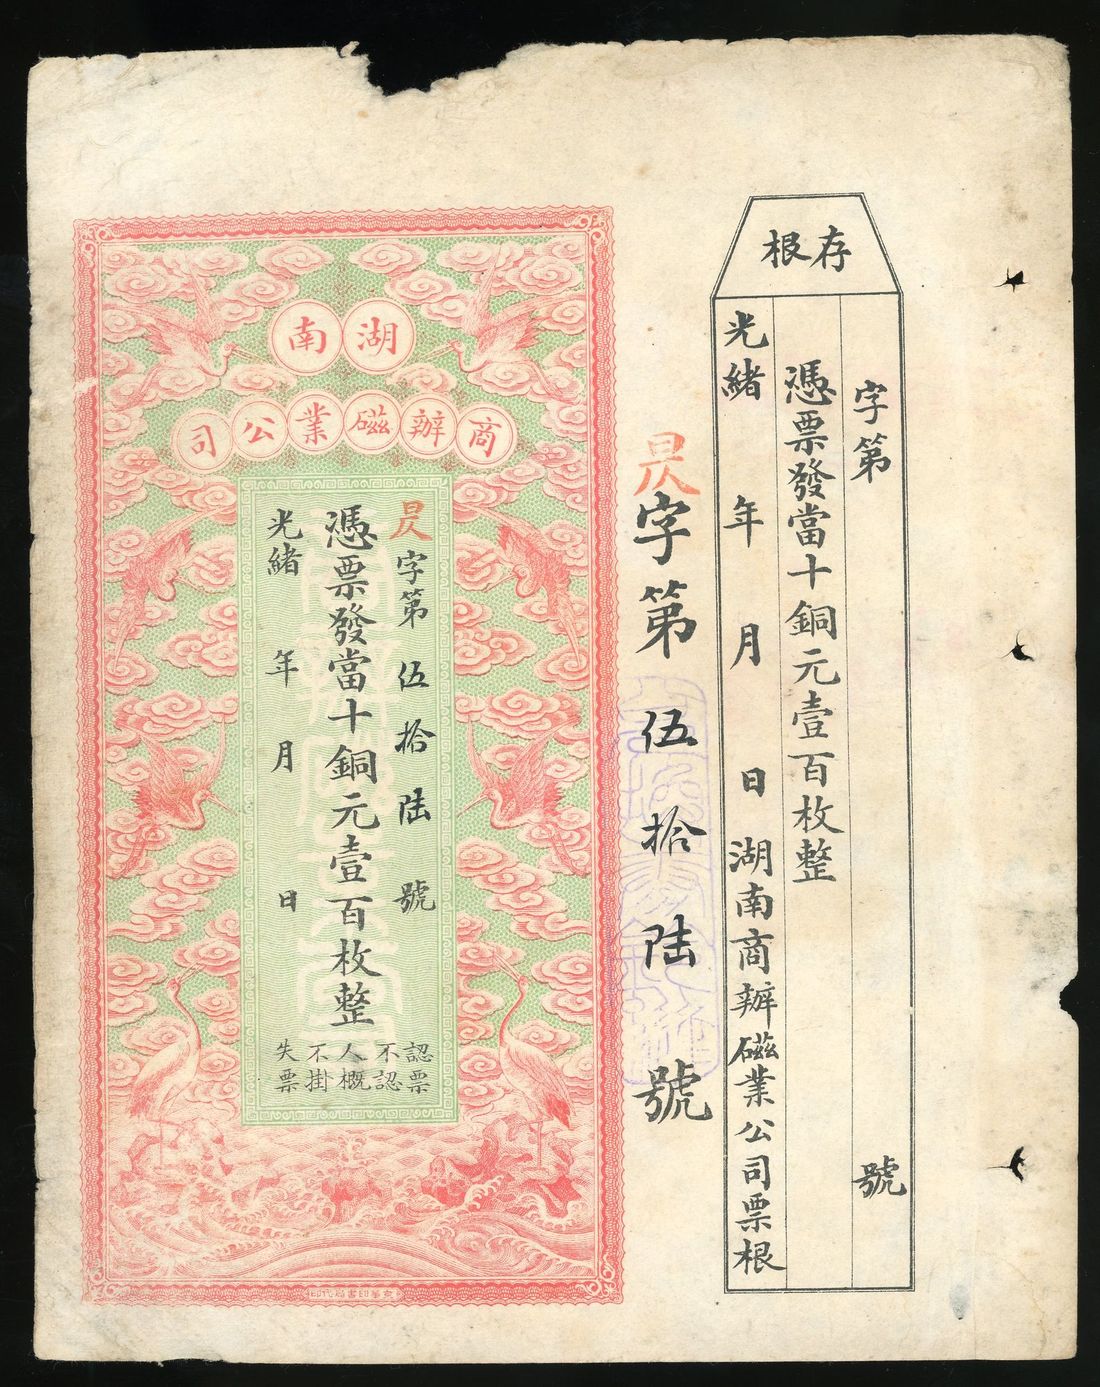 存根
字第 號
憑票發當十銅元壹百枚整
光緒 年 月 日湖南商辦磁業公司票根
昃字第伍拾陸號
湖南
商辦磁業公司
昃字第伍拾陸號
憑票發當十銅元壹百枚整
光緒 年 月 日
認票
不認
人概
不掛
失票